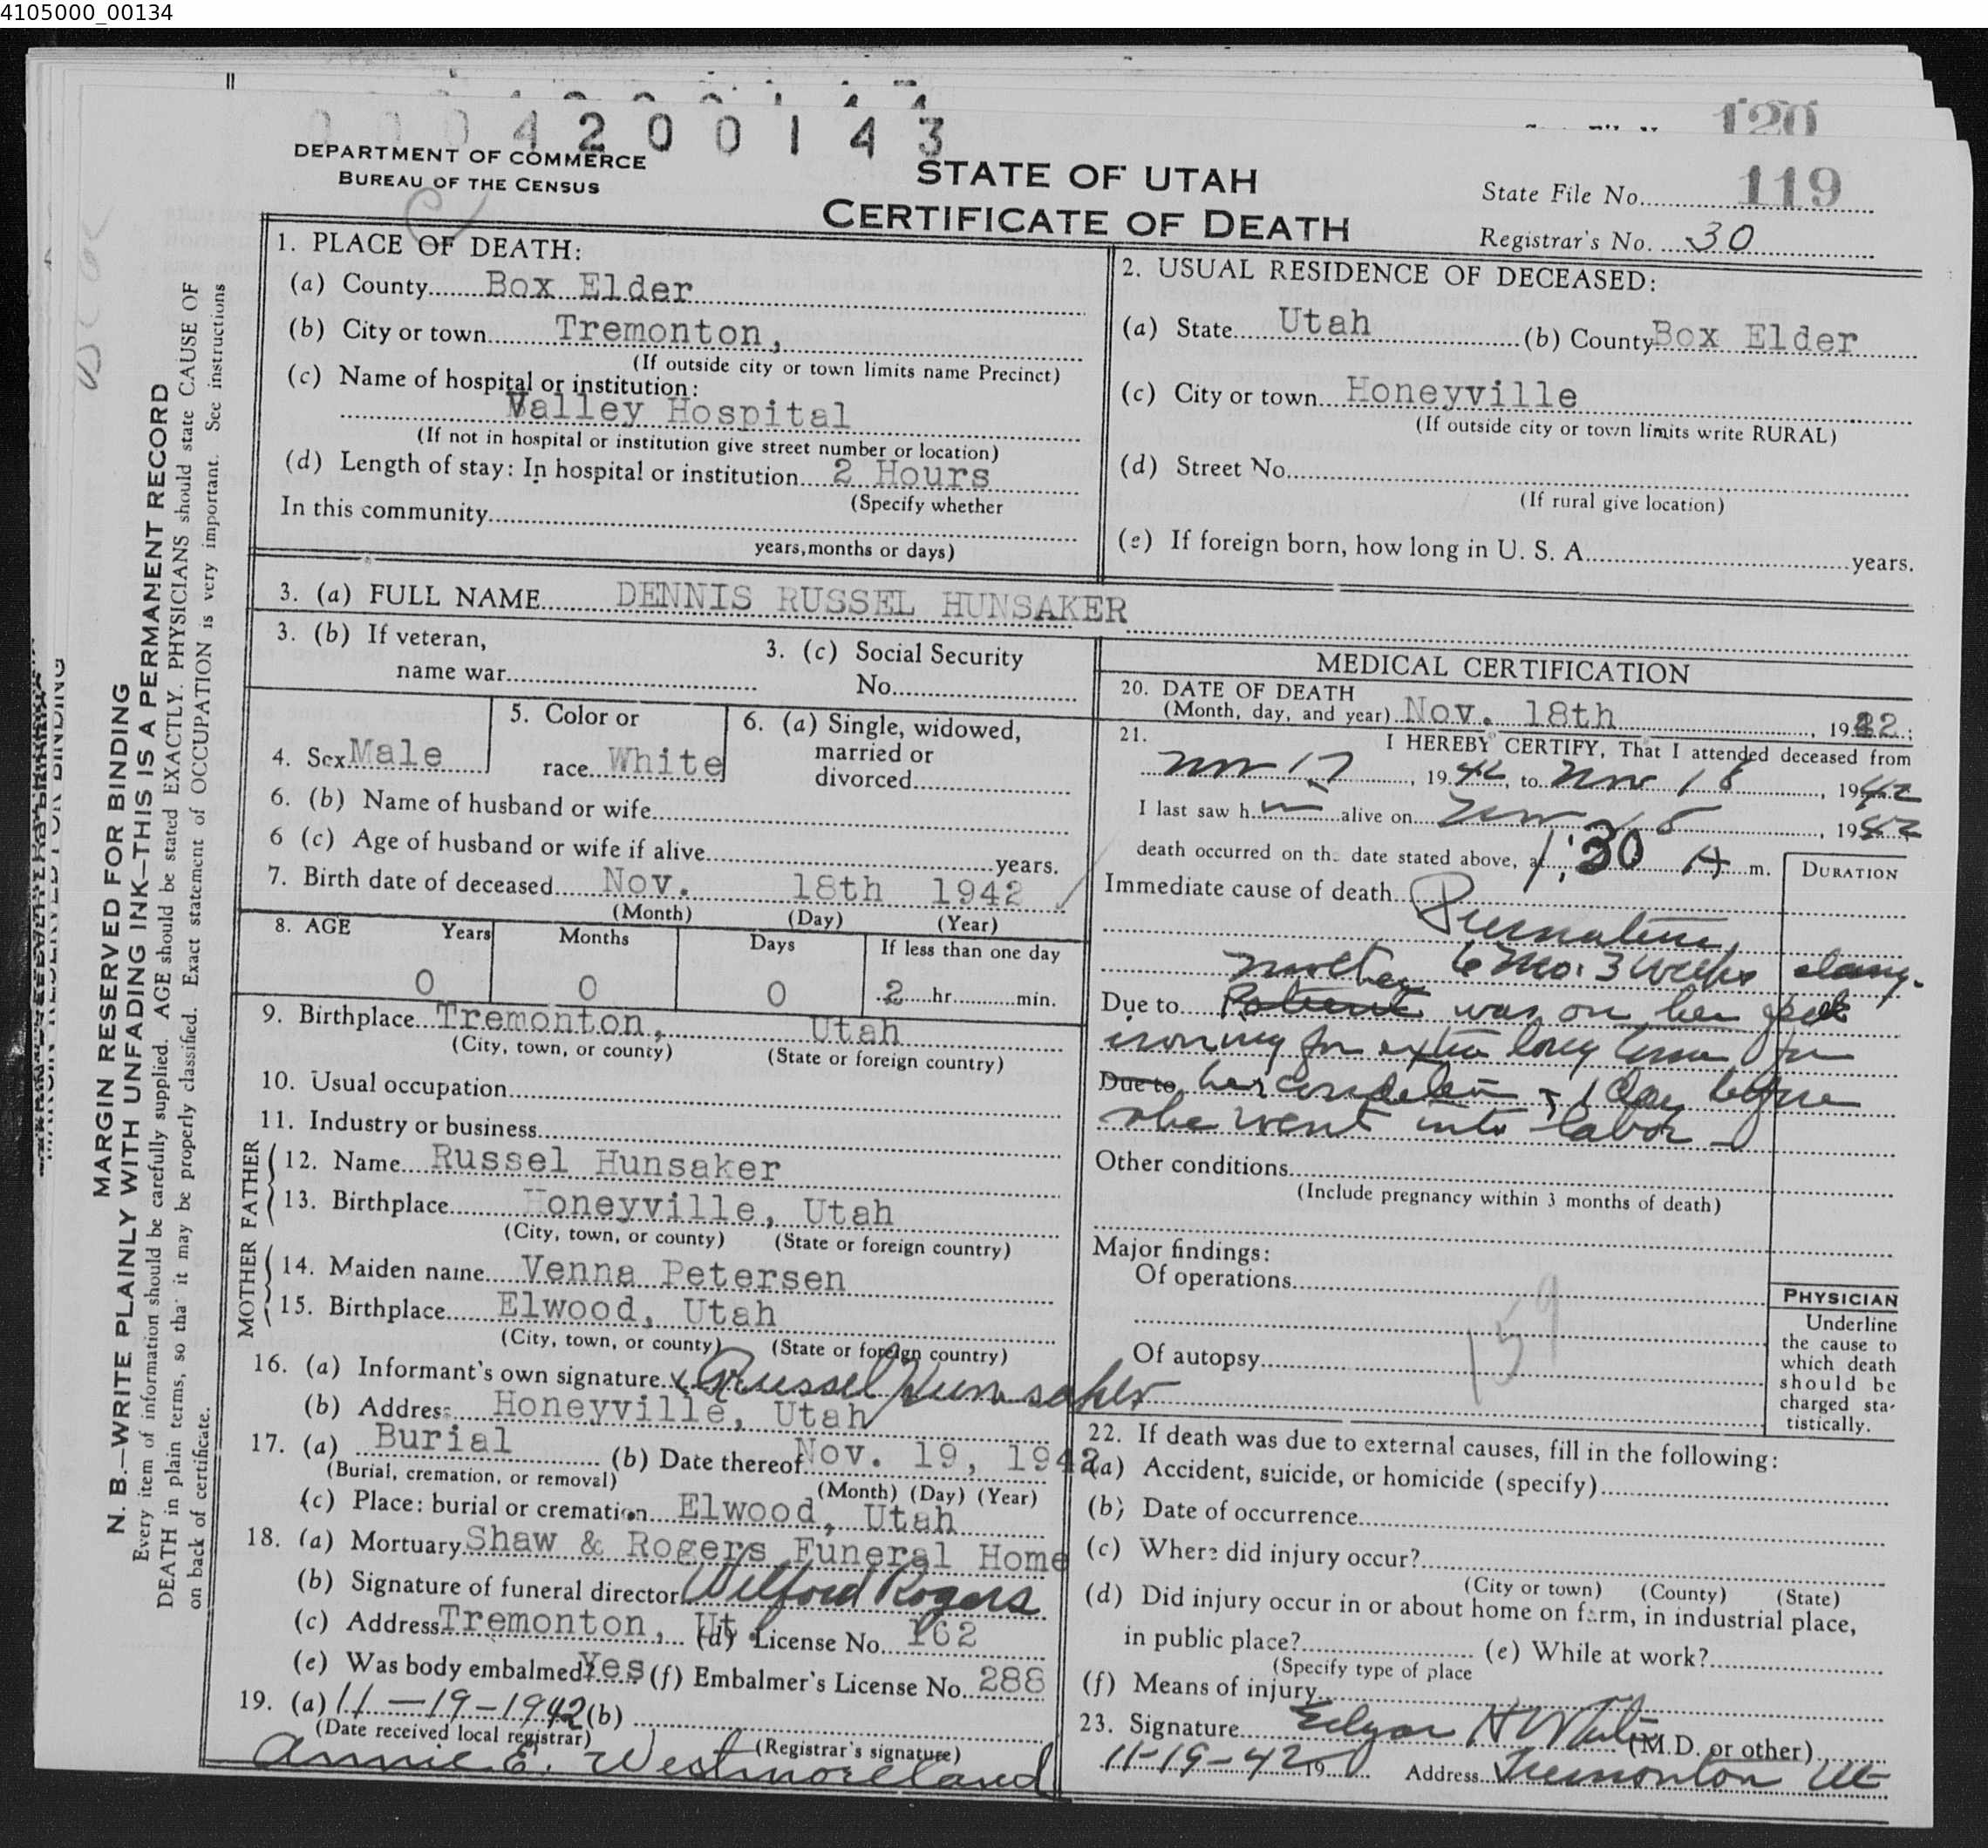 4105000_00134
0004200143
120
DEPARTMENT OF COMMERCE
BUREAU OF THE CENSUS
STATE OF UTAH
CERTIFICATE OF DEATH
State File No. 119
Registrar's No. 30
MARGIN RESERVED FOR BINDING
N. B.—WRITE PLAINLY WITH UNFADING INK—THIS IS A PERMANENT RECORD
Every item of information should be carefully supplied. AGE should be stated EXACTLY. PHYSICIANS should state CAUSE OF
DEATH in plain terms, so that it may be properly classified. Exact statement of OCCUPATION is very important. See instructions
on back of certificate.
1. PLACE OF DEATH:
(a) County Box Elder
(b) City or town Tremonton,
(If outside city or town limits name Precinct)
(c) Name of hospital or institution:
Valley Hospital
(If not in hospital or institution give street number or location)
(d) Length of stay: In hospital or institution 2 Hours
(Specify whether
In this community
years, months or days)
2. USUAL RESIDENCE OF DECEASED:
(a) State Utah (b) County Box Elder
(c) City or town Honeyville
(If outside city or town limits write RURAL)
(d) Street No.
(If rural give location)
(e) If foreign born, how long in U. S. A. years.
3. (a) FULL NAME DENNIS RUSSEL HUNSAKER
3. (b) If veteran,
name war
3. (c) Social Security
No.
4. Sex Male
5. Color or
race White
6. (a) Single, widowed,
married or
divorced
6. (b) Name of husband or wife
6 (c) Age of husband or wife if alive years.
7. Birth date of deceased Nov. 18th 1942
(Month) (Day) (Year)
8. AGE Years Months Days If less than one day
0 0 0 2 hr. min.
9. Birthplace Tremonton, Utah
(City, town, or county) (State or foreign country)
10. Usual occupation
11. Industry or business
FATHER
12. Name Russel Hunsaker
13. Birthplace Honeyville, Utah
(City, town, or county) (State or foreign country)
MOTHER
14. Maiden name Venna Petersen
15. Birthplace Elwood, Utah
(City, town, or county) (State or foreign country)
16. (a) Informant's own signature x Russel Hunsaker
(b) Address Honeyville, Utah
17. (a) Burial (b) Date thereof Nov. 19, 1942
(Burial, cremation, or removal) (Month) (Day) (Year)
(c) Place: burial or cremation Elwood, Utah
18. (a) Mortuary Shaw & Rogers Funeral Home
(b) Signature of funeral director Wilford Rogers
(c) Address Tremonton, Ut. (d) License No. 162
(e) Was body embalmed? Yes (f) Embalmer's License No. 288
19. (a) 11-19-1942 (b)
(Date received local registrar) (Registrar's signature)
Annie E. Westmoreland
MEDICAL CERTIFICATION
20. DATE OF DEATH
(Month, day, and year) Nov. 18th, 1942;
21. I HEREBY CERTIFY, That I attended deceased from
Nov 17, 1942, to Nov 18, 1942
I last saw h im alive on Nov 18, 1942
death occurred on the date stated above, at 1:30 A m.
DURATION
Immediate cause of death
Premature,
6 Mo. 3 weeks along.
mother
Due to Patient was on her feet
ironing for extra long time for
Due to her condition 1 day before
she went into labor —
Other conditions
(Include pregnancy within 3 months of death)
Major findings:
Of operations
159
Of autopsy
PHYSICIAN
Underline
the cause to
which death
should be
charged sta-
tistically.
22. If death was due to external causes, fill in the following:
(a) Accident, suicide, or homicide (specify)
(b) Date of occurrence
(c) Where did injury occur?
(City or town) (County) (State)
(d) Did injury occur in or about home on farm, in industrial place,
in public place? (e) While at work?
(Specify type of place
(f) Means of injury
23. Signature Edgar H White (M.D. or other)
11-19-42 19 Address Tremonton Ut